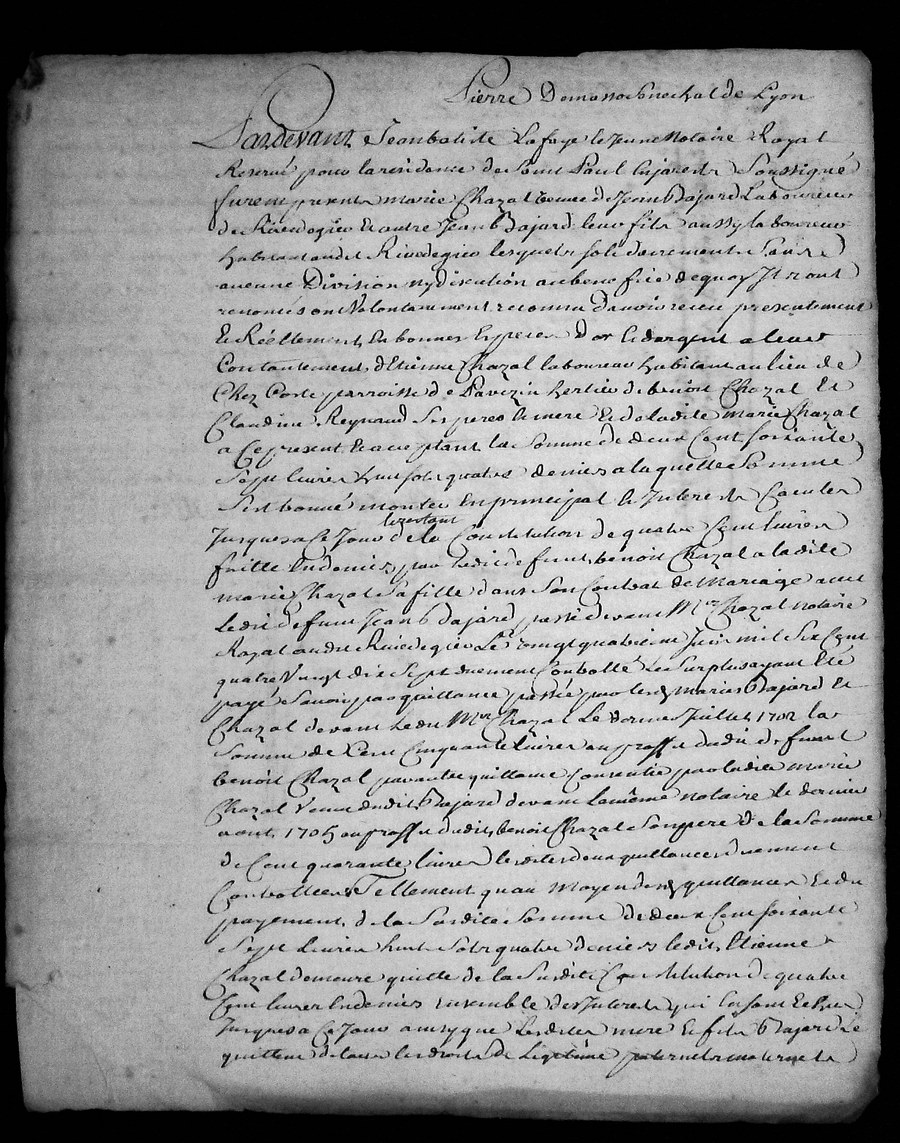 Pierre Demasso Senechal de Lyon
Pardevant Jeanbatiste Lafaye le Jeune Notaire Royal
Reservé pour la residence de Saint Paul en jarest Soussigné
furent presents marie Chazal veuve de Jean Bajard Laboureur
de Rivedegier et autre Jean Bajard leur fils aussy laboureur
habitant audit Rivedegier lesquels solidairement Sans
aucune Division ny discution au benefice de quoy Ils ont
renoncés ont Volontairement reconnu d'avoir receu presentement
et Réellement en bonnes Especes d'or et dargent a leur
Contantement d'Etienne Chazal laboureur habitant au lieu de
Chez Coste parroisse de Pavezin heritier de benoist Chazal et
Claudine Reynaud Ses peres et mere et de ladite marie Chazal
a Ce present et acceptant la Somme de deux Cent soixante
Sept livres huit sols quatre deniers a laquelle Somme
S'est trouvé monter en principal et Interets Courules
Jusques a Ce Jour le restant de la Constitution de quatre Cent livres
faitte en deniers par ledit defunt benoist Chazal a ladite
marie Chazal Sa fille dans Son Contrat de Mariage avec
ledit defunt Jean Bajard passé devant Mre Chazal notaire
Royal audit Rivedegier Le vingt quatrieme Juin mil Six Cent
quatre Vingt dix Sept duement Controllé Le Surplus ayant Eté
payé Sauoir par quittance passée par lesd. mariés Bajard et
Chazal devant ledit Mre Chazal Le dernier Juillet 1702 la
Somme de Cent Cinquante livres au proffit dudit defunt
benoist Chazal par autre quittance Consentie par ladite marie
Chazal Veuve dudit Bajard devant le même notaire le dernier
aout 1705 au proffit dudit benoist Chazal Son pere de la Somme
de Cent quarante livres lesdites deux quittances duement
Controllées Tellement qu'au moyen desd. quittances et du
payement de la Susdite Somme de deux Cent soixante
Sept Livres huit Sols quatre deniers ledit Etienne
Chazal demeure quitte de la Susdite Constitution de quatre
Cent livres en deniers ensemble des Interets qui En sont Echus
Jusques a Ce Jour ainsy que lesdites mere et fils Bajard Le
quittent de tous les droits de Legitime paternels maternels